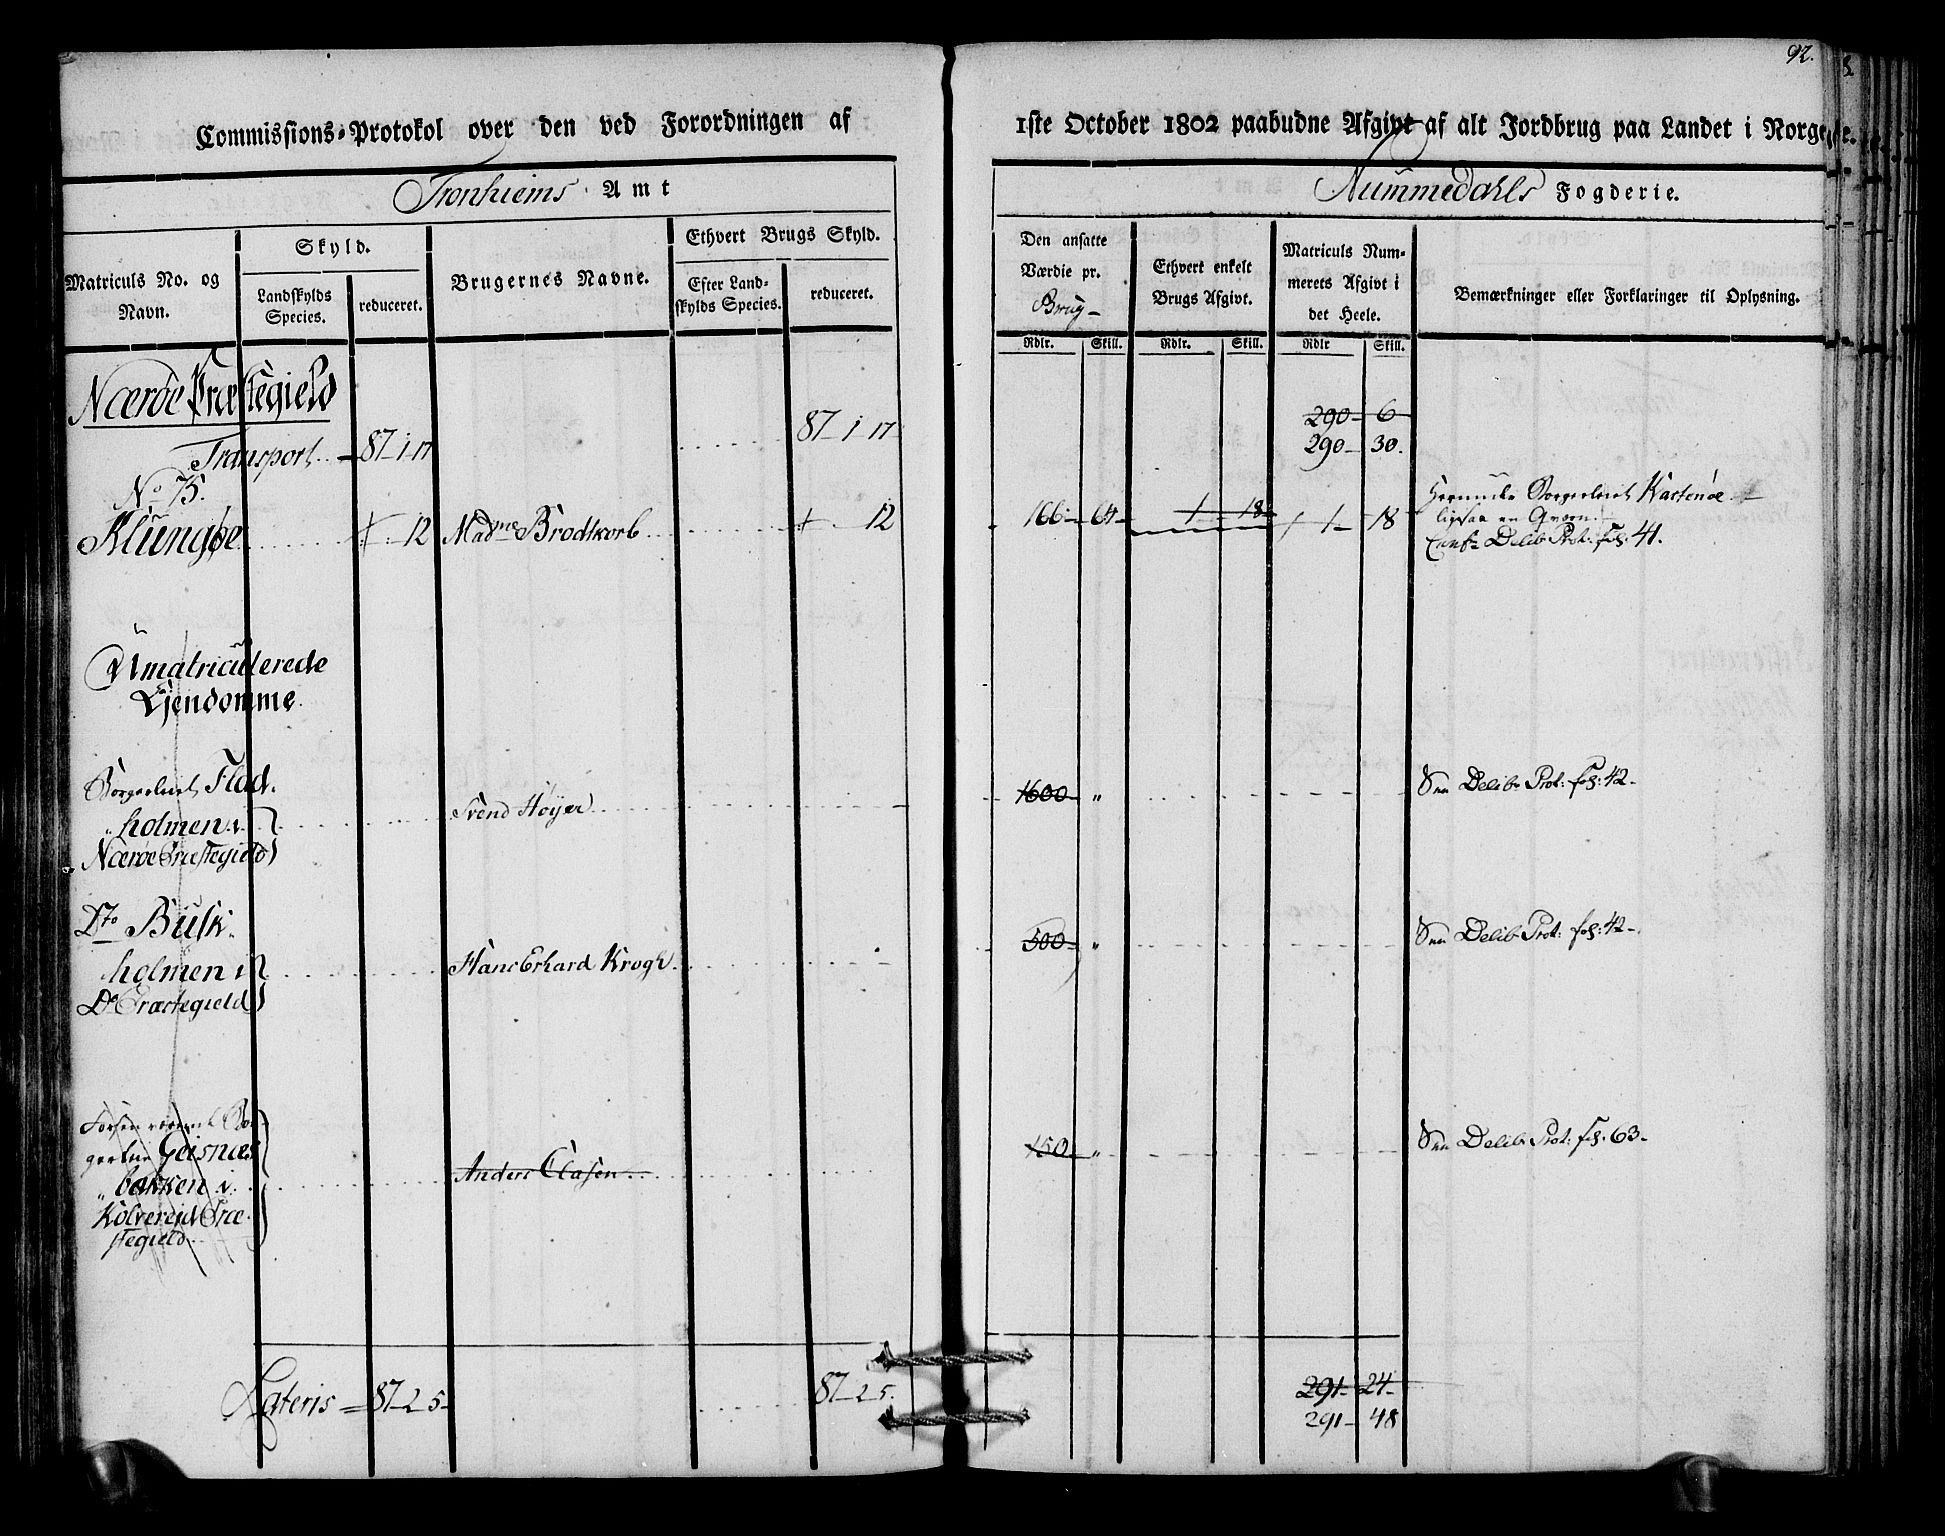 92.
Commissions-Protokol over den ved Forordningen af 1ste October 1802 paabudne Afgivt af alt Jordbrug paa Landet i Norge
Tronhiems Amt
Nummedahls Fogderie.
Matriculs No. og Navn.
Skyld.
Landskylds Species.
reduceret.
Brugernes Navne.
Ethvert Brugs Skyld.
Efter Landskylds Species.
reduceret.
Den ansatte Værdie pr. Brug
Ethvert enkelt Brugs Afgivt.
Matriculs Nummerets Afgivt i det Heele.
Bemærkninger eller Forklaringer til Oplysning.
Rdlr. Skill. Rdlr. Skill. Rdlr Skill.
Nærøe Præstegield
290 6
Transport 87-1-17 87-1-17 290- 30.
No 75.
Klungøe 12 Madme Brodtkorb 12 166- 64 1 18 1- 18
Herunder Borgerleiet Kastenøe
ligesaa en Qværn.
Confr Delib Prot: fol: 41.
Umatriculerede
Ejendomme.
Borgerleiet Flad-
holmen i
Nærøe Præstegield
Svend Høyer 1600 "
See Delib Prot: fol: 42-
Dto Busk-
holmen i
Do Præstegield
Hans Erhard Krogh. 500 "
See Delib Prot: fol: 42-
Geisnæs
bakken i
Kolvereid Præ-
stegield
Anders Clasen 150 "
See Delib Prot: fol: 63-
291- 24-
Lateris = 87-2-5- 87-2-5. 291- 48